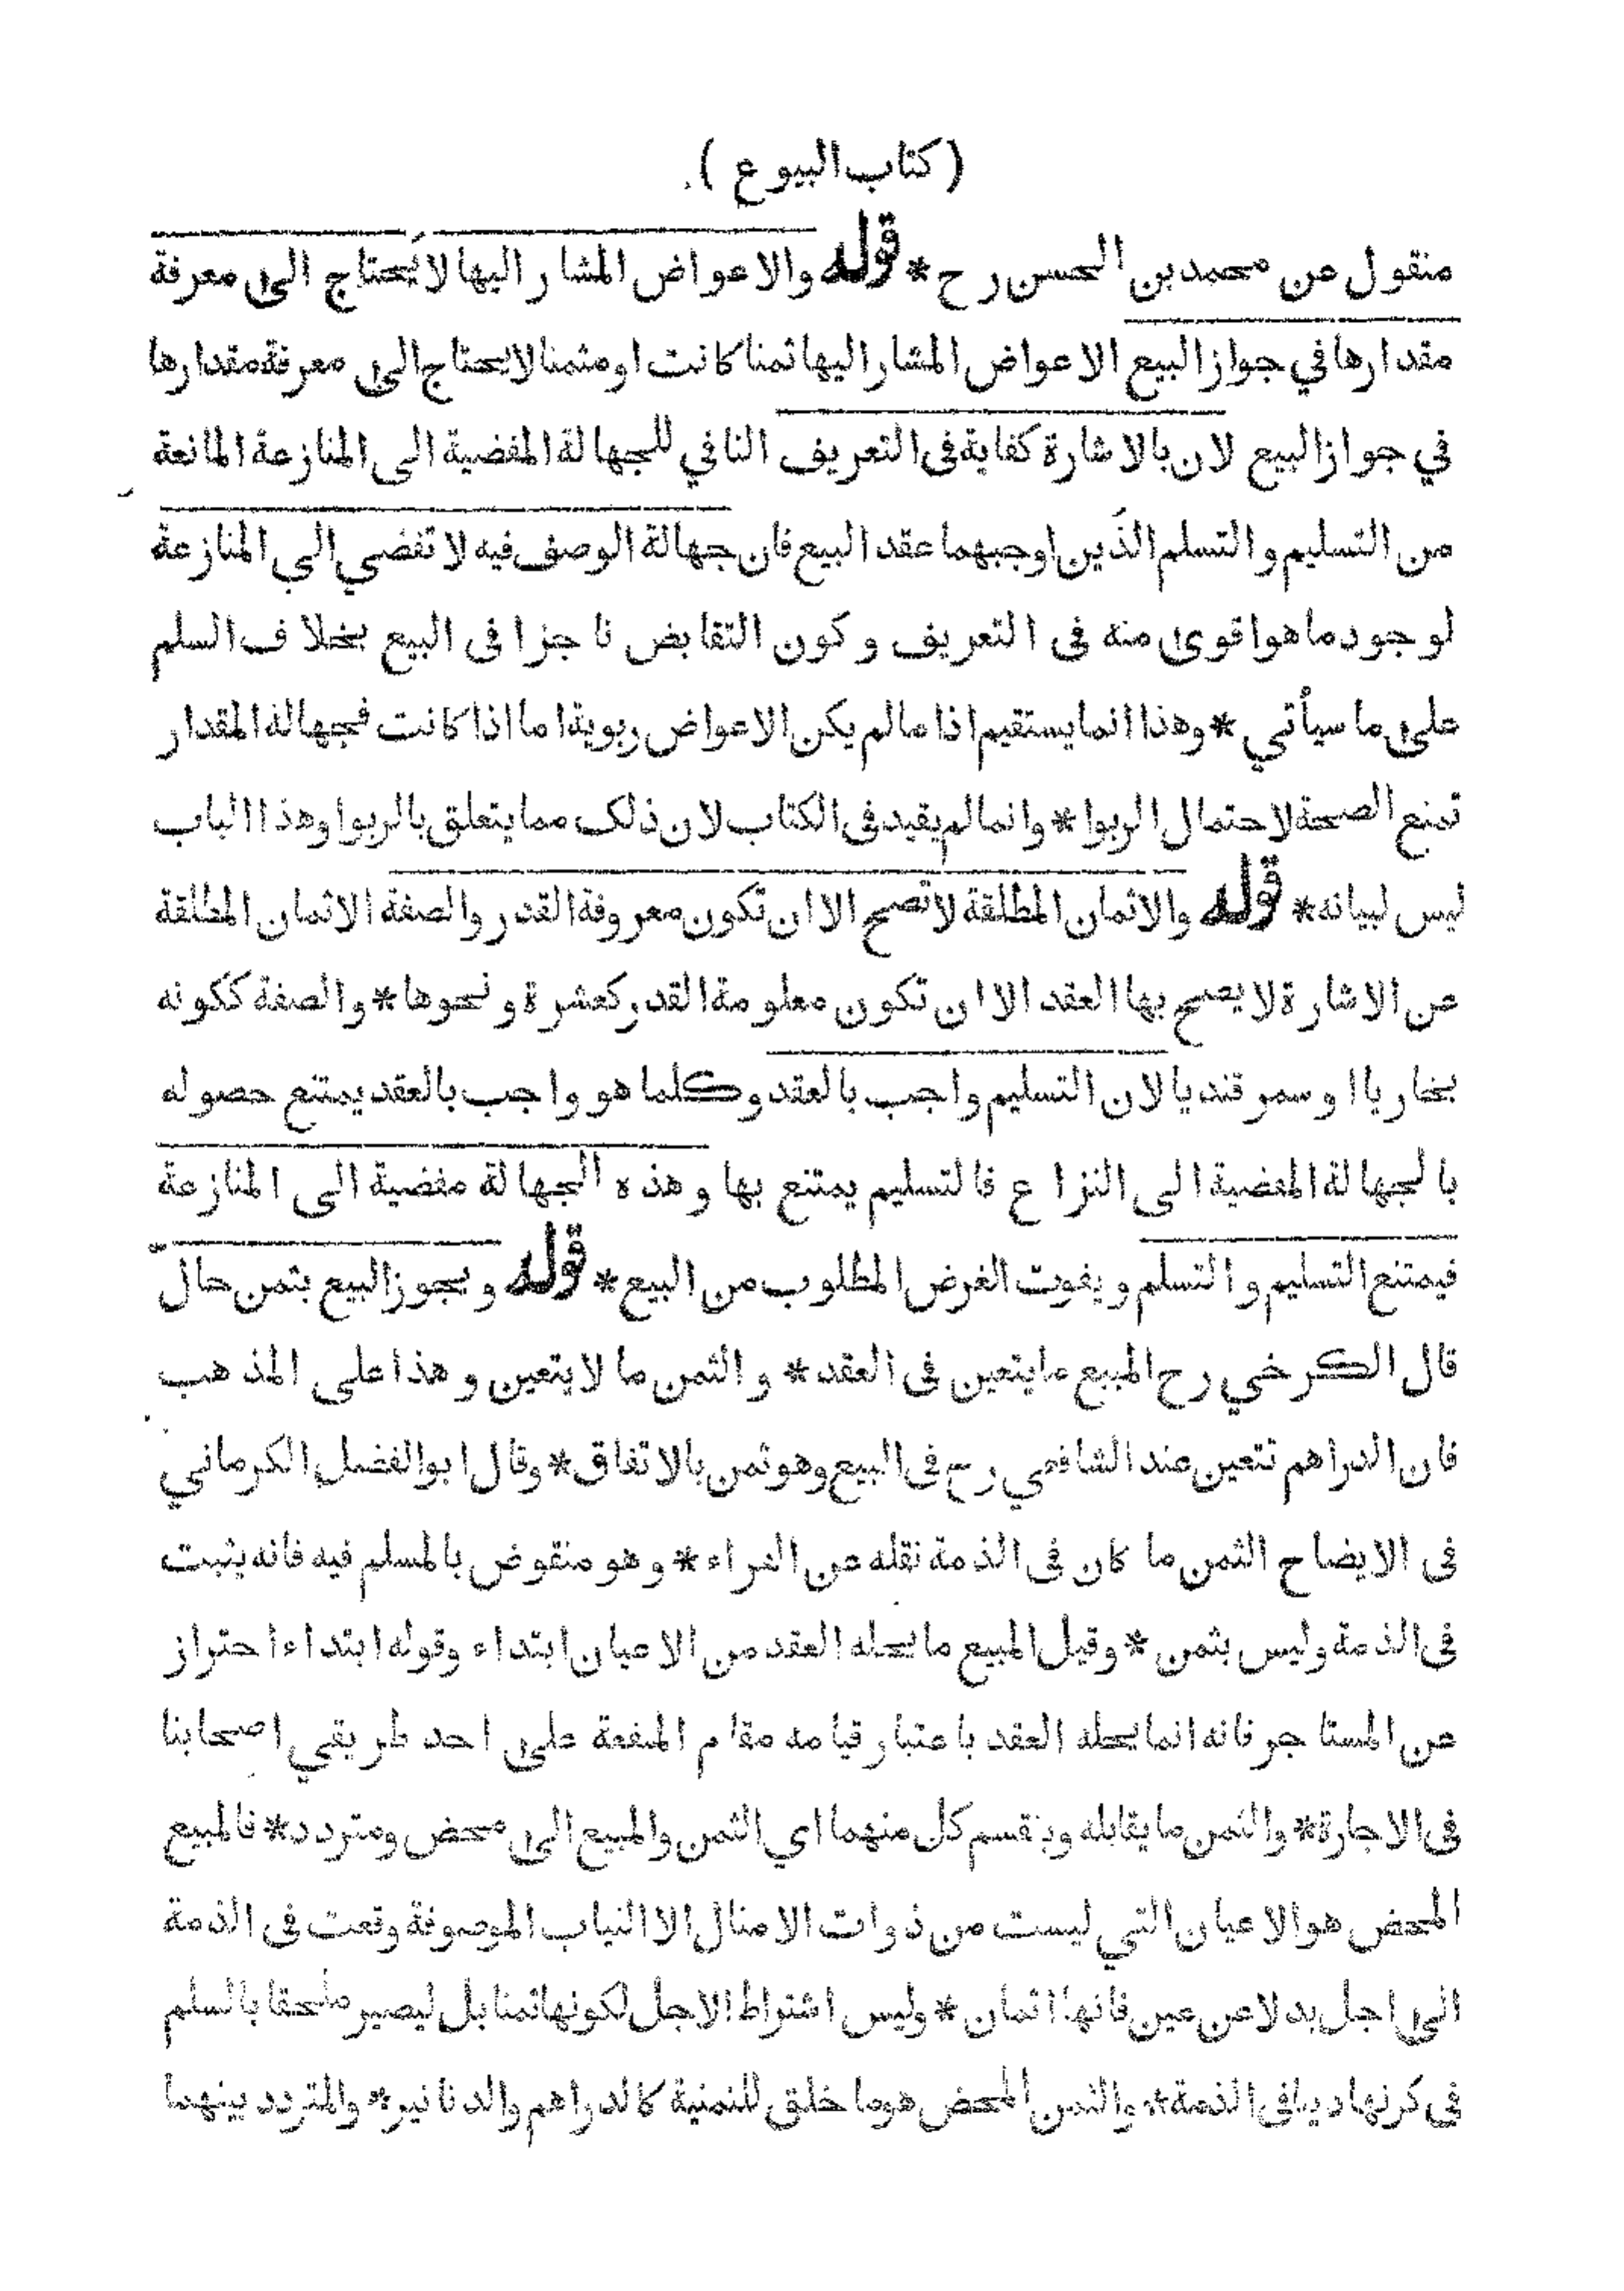 (كتاب البيوع)
منقول عن محمد بن الحسن رح * قوله والاعواض المشار اليها لا يُحتاج الى معرفة
مقدارها في جواز البيع الاعواض المشار اليها ثمنا كانت او مثمنا لا يحتاج الى معرفة مقدارها
في جواز البيع لان بالاشارة كفاية فى التعريف النافي للجهالة المفضية الى المنازعة المانعة
من التسليم والتسلم الذَين اوجبهما عقد البيع فان جهالة الوصف فيه لا تفضي الى المنازعة
لوجود ما هو اقوى منه فى التعريف وكون التقابض ناجزا فى البيع بخلاف السلم
على ما سيأتي * وهذا انما يستقيم اذا مالم يكن الاعواض ربوية اما اذا كانت فجهالة المقدار
تمنع الصحة لاحتمال الربوا * وانما لم يقيد فى الكتاب لان ذلك مما يتعلق بالربوا وهذا الباب
ليس لبيانه * قوله والاثمان المطلقة لا تصح الا ان تكون معروفة القدر والصفة الاثمان المطلقة
عن الاشارة لا يصح بها العقد الا ان تكون معلومة القدر كعشرة ونحوها * والصفة ككونه
بخاريا او سمرقنديا لان التسليم واجب بالعقد وكلما هو واجب بالعقد يمتنع حصوله
بالجهالة المفضية الى النزاع فالتسليم يمتنع بها وهذه الجهالة مفضية الى المنازعة
فيمتنع التسليم والتسلم ويفوت الغرض المطلوب من البيع * قوله ويجوز البيع بثمن حالّ
قال الكرخي رح المبيع ما يتعين فى العقد * والثمن ما لا يتعين وهذا على المذهب
فان الدراهم تتعين عند الشافعي رح فى البيع وهو ثمن بالاتفاق * وقال ابو الفضل الكرماني
فى الايضاح الثمن ما كان فى الذمة نقله عن الفراء * وهو منقوض بالمسلم فيه فانه يثبت
فى الذمة وليس بثمن * وقيل المبيع ما يحله العقد من الاعيان ابتداء وقوله ابتداء احتراز
عن المستاجر فانه انما يحله العقد باعتبار قيامه مقام المنفعة على احد طريقي اصحابنا
فى الاجارة * والثمن ما يقابله وينقسم كل منهما اي الثمن والمبيع الى محض ومتردد * فالمبيع
المحض هو الاعيان التي ليست من ذوات الامثال الا الثياب الموصوفة وقعت فى الذمة
الى اجل بدلا عن عين فانها اثمان * وليس اشتراط الاجل لكونها ثمنا بل ليصير ملحقا بالسلم
فى كونها دينا فى الذمة * والثمن المحض هو ما خلق للثمنية كالدراهم والدنانير * والمتردد بينهما